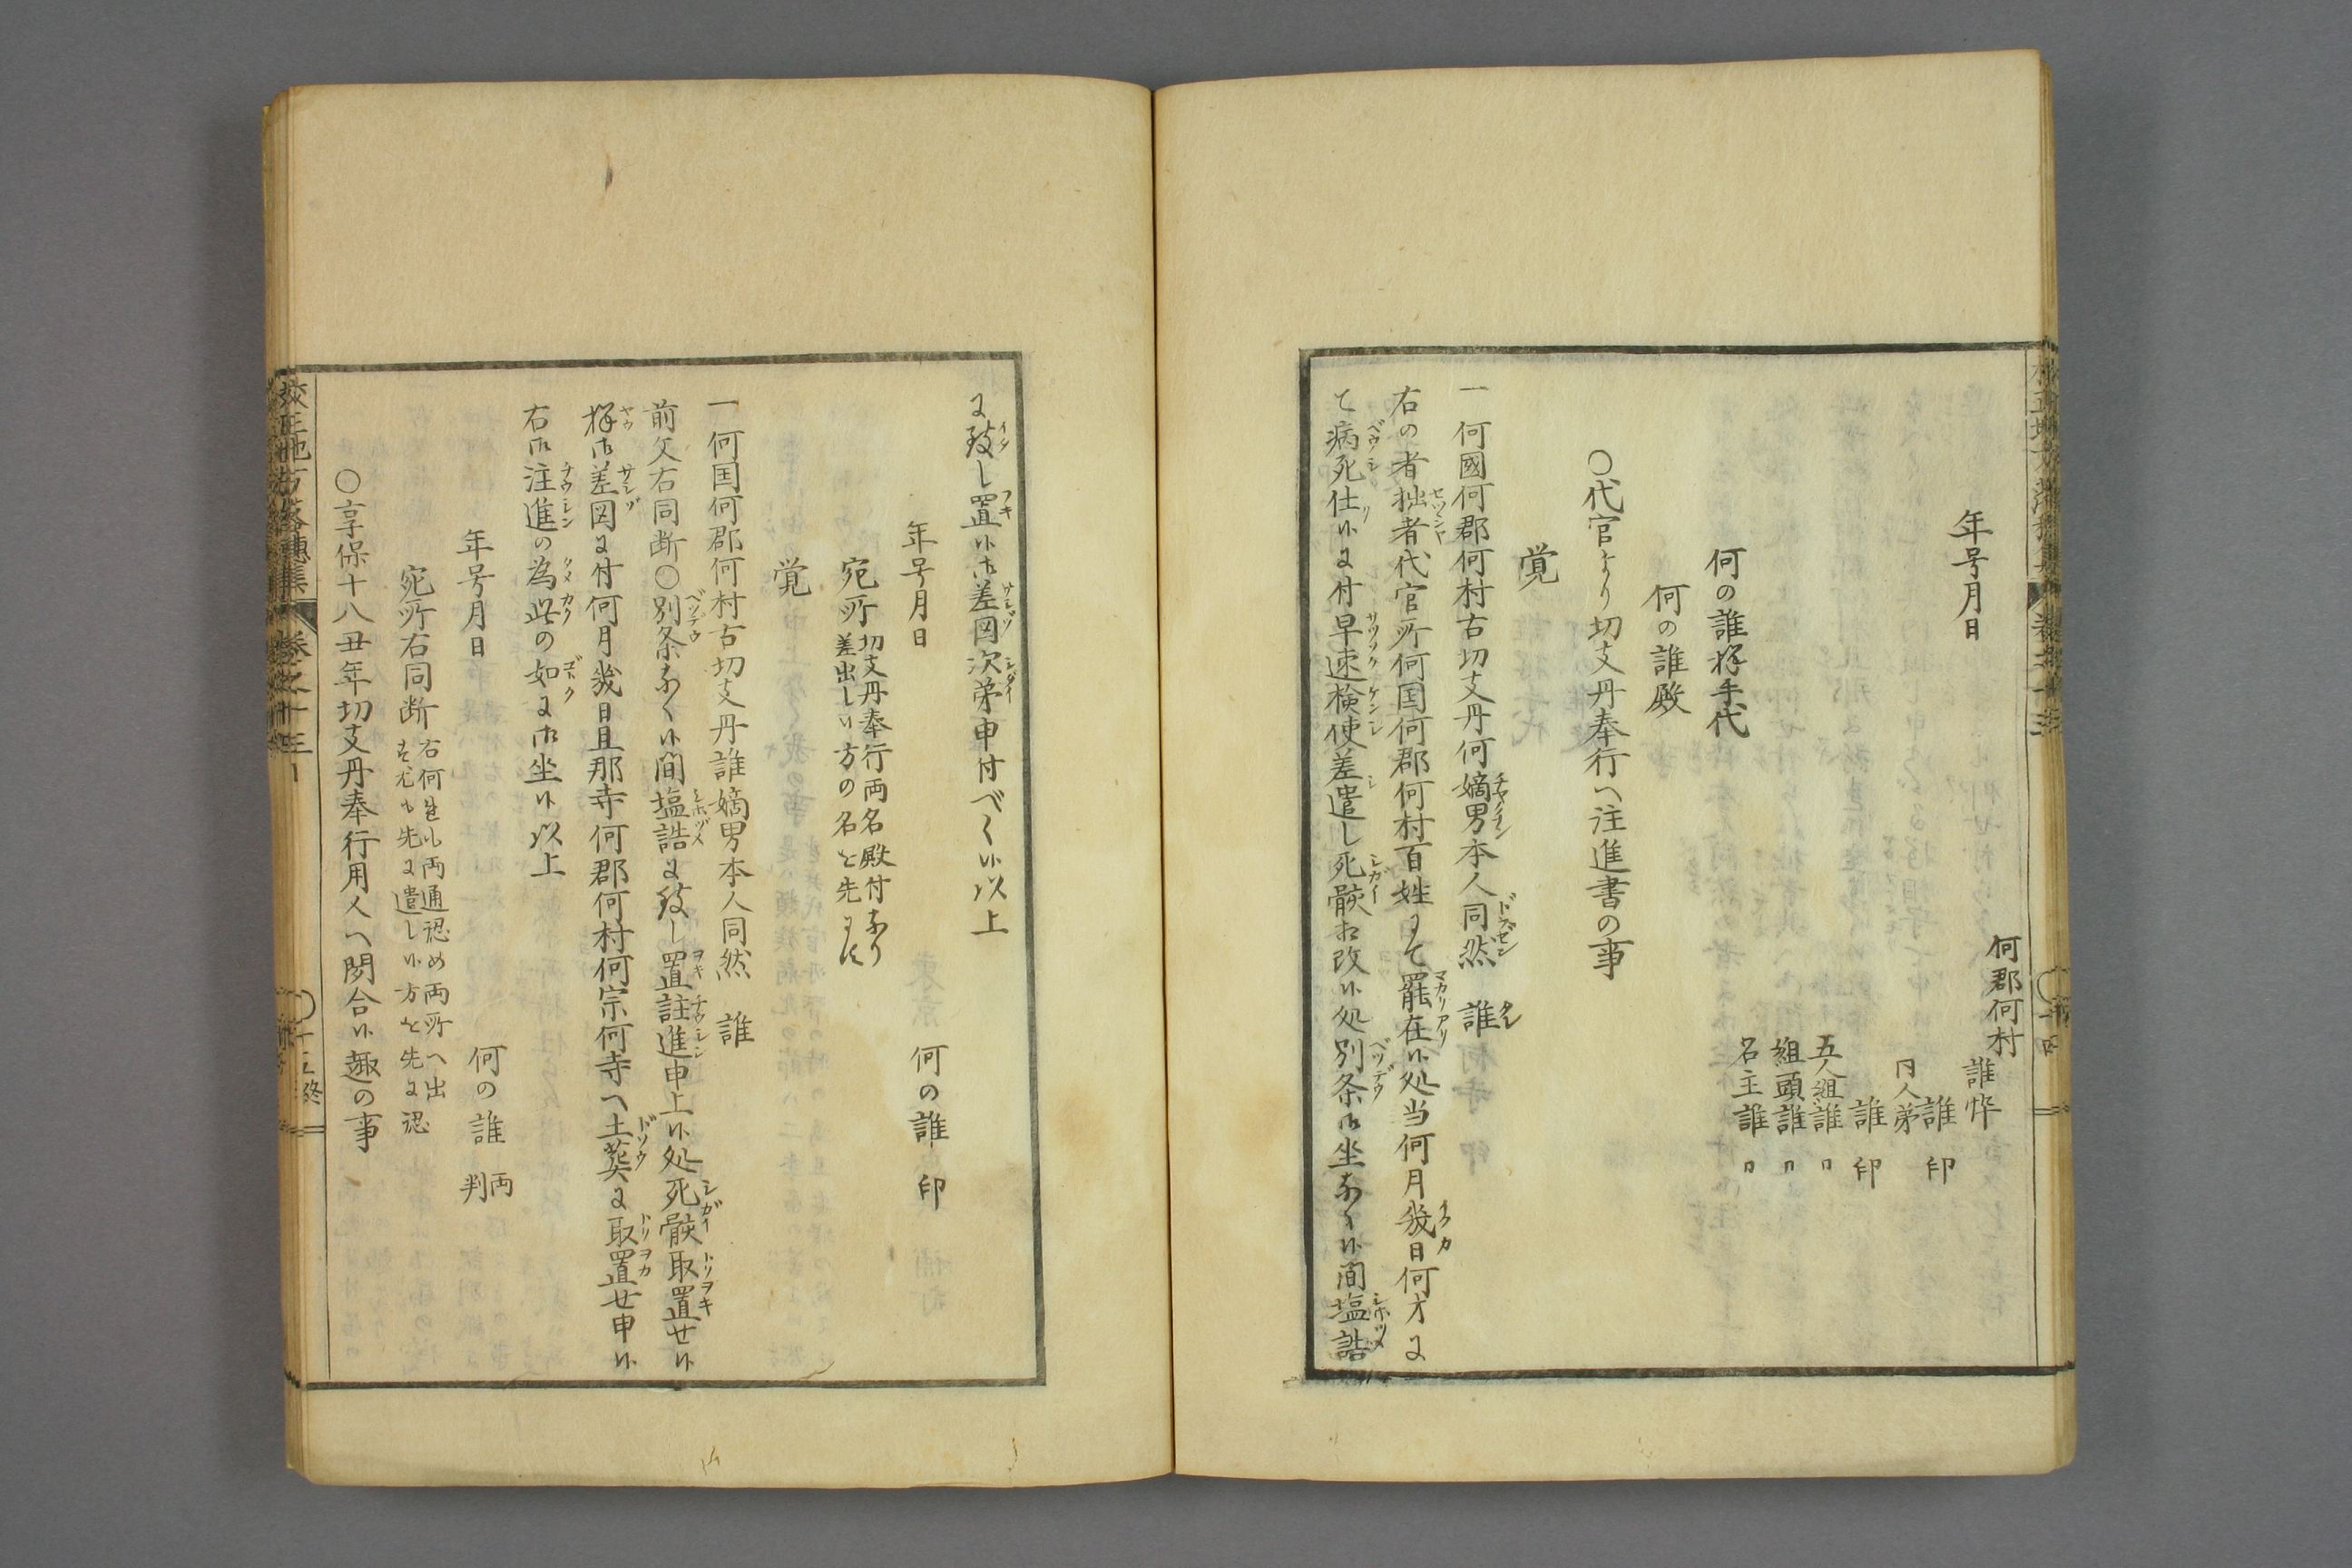 何郡何村
誰忰
誰 印
同人弟
誰 印
五人組誰 〃
組頭誰 〃
名主誰 〃
年号月日
何の誰様手代
何の誰殿
○代官より切支丹奉行へ注進書の事
覚
一 何國何郡何村古切支丹何嫡男本人同然 誰
右の者拙者代官所何国何郡何村百姓にて罷在候処当何月幾日何才に
て病死仕候に付早速検使差遣し死骸相改候処別条御坐なく候間塩詰
に致し置候御差図次第申付べく候以上
年号月日 何の誰 印
宛所 切支丹奉行両名殿付なり
差出し候方の名を先にす
覚
一 何国何郡何村古切支丹誰嫡男本人同然 誰
前文右同断○別条なく候間塩詰に致し置註進申上候処死骸取置せ候
様御差図に付何月幾日旦那寺何郡何村何宗何寺へ土葬に取置せ申候
右御注進の為此の如に御坐候以上
年号月日 何の誰 両判
宛所右同断 右何れも両通認め両所へ出
す尤も先に遣し候方を先に認
○享保十八丑年切支丹奉行用人へ問合候趣の事
校正地方落穂集 巻之十三